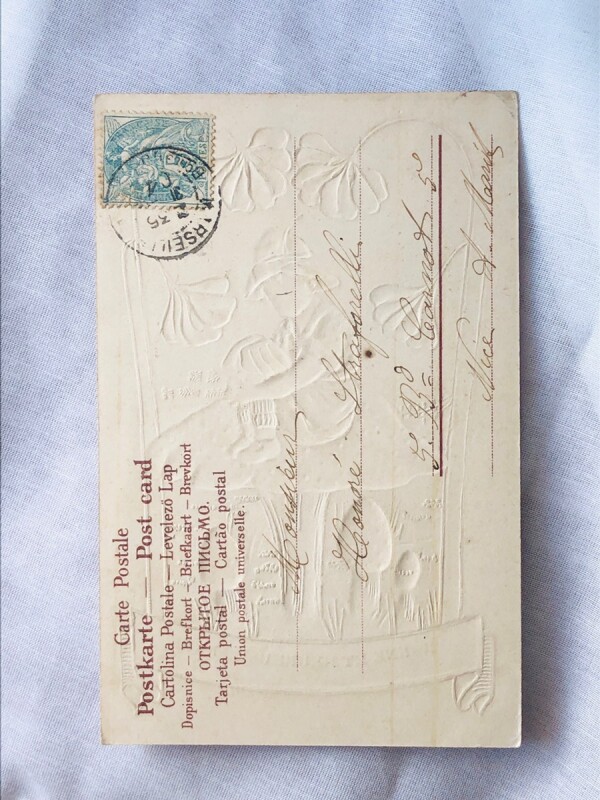 Carte Postale
Postkarte — Post card
Cartolina Postale — Levelező Lap
Dopisnice — Brefkort — Briefkaart — Brevkort
ОТКРЫТОЕ ПИСЬМО.
Tarjeta postal — Cartão postal
Union postale universelle.
MARSEILLE
Monsieur
Honoré
5. Bd Carnot 5
Nice